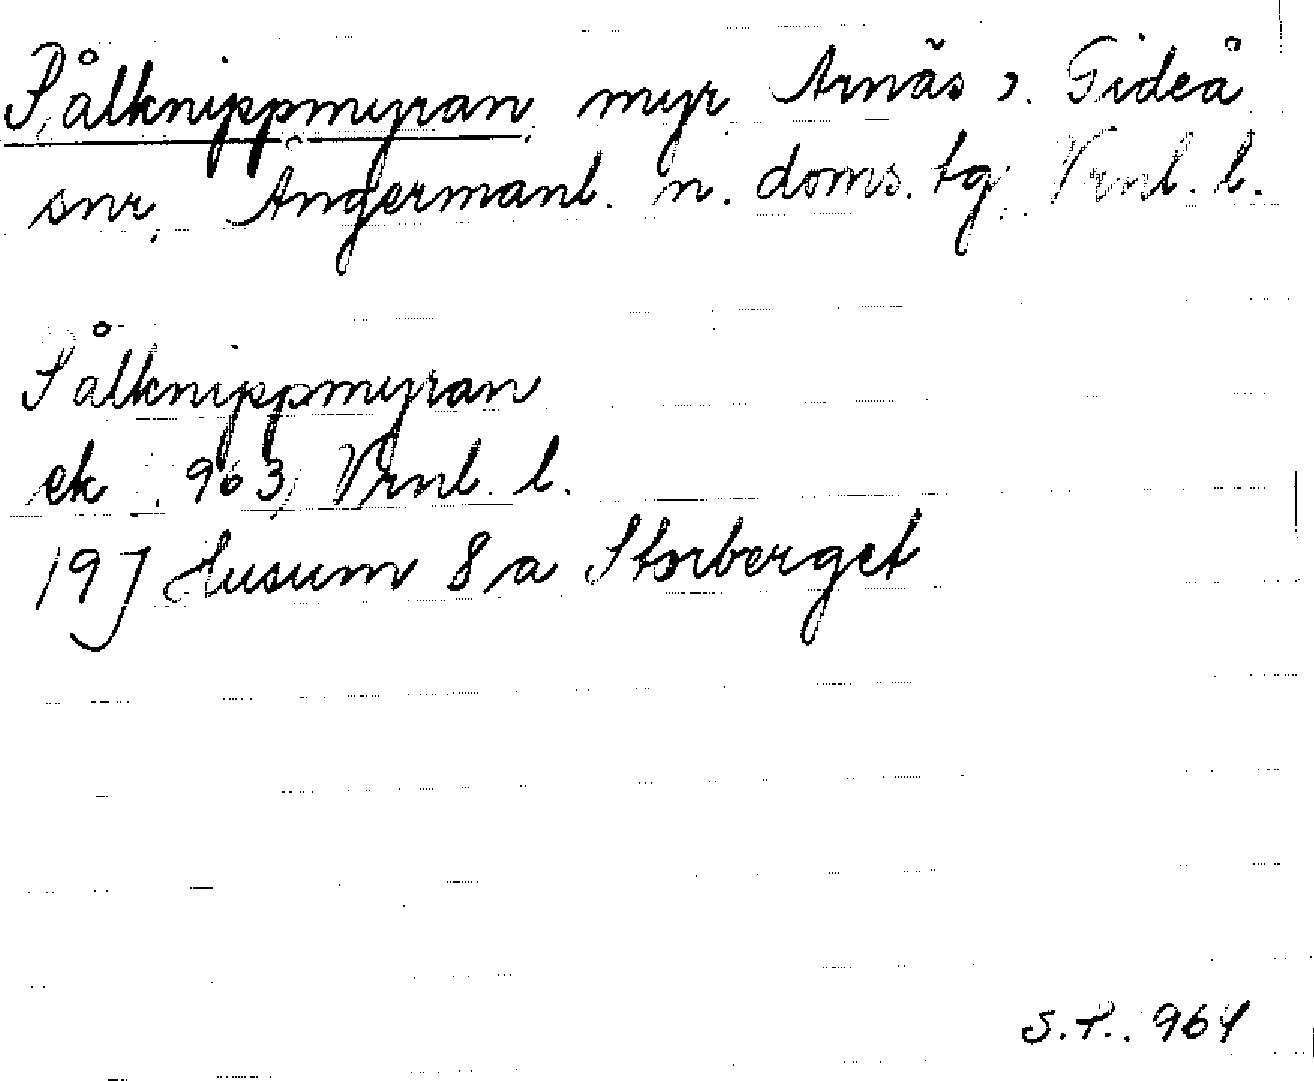 Pålknippmyran, myr, Arnäs o. Gideå
snr, Ångermanl. n. doms. tg, Vrnl. l.
Pålknippmyran
ek. 963, Vrnl. l.
19J Husum 8 a Storberget
S.P.. 964